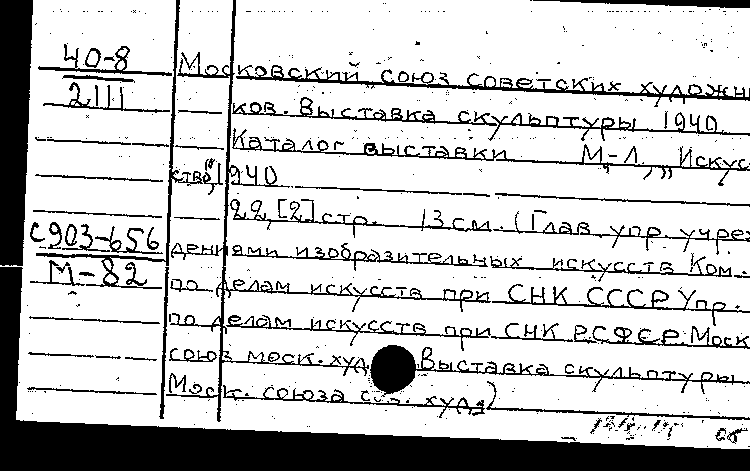 40-8 Московский союз советских художни
2111 ков. Выставка скульптуры 1940
Каталог выставки М-Л, „Искус
ство", 1940
22, [2] стр. 13 см. (Глав. упр. учреж
С903-656 дениями изобразительных искусств Ком.
М-82 по делам искусств при СНК СССР Упр.
по делам искусств при СНК РСФСР. Моск
союз моск. худ Выставка скульптуры
Моск. союза сов. худ.)
об